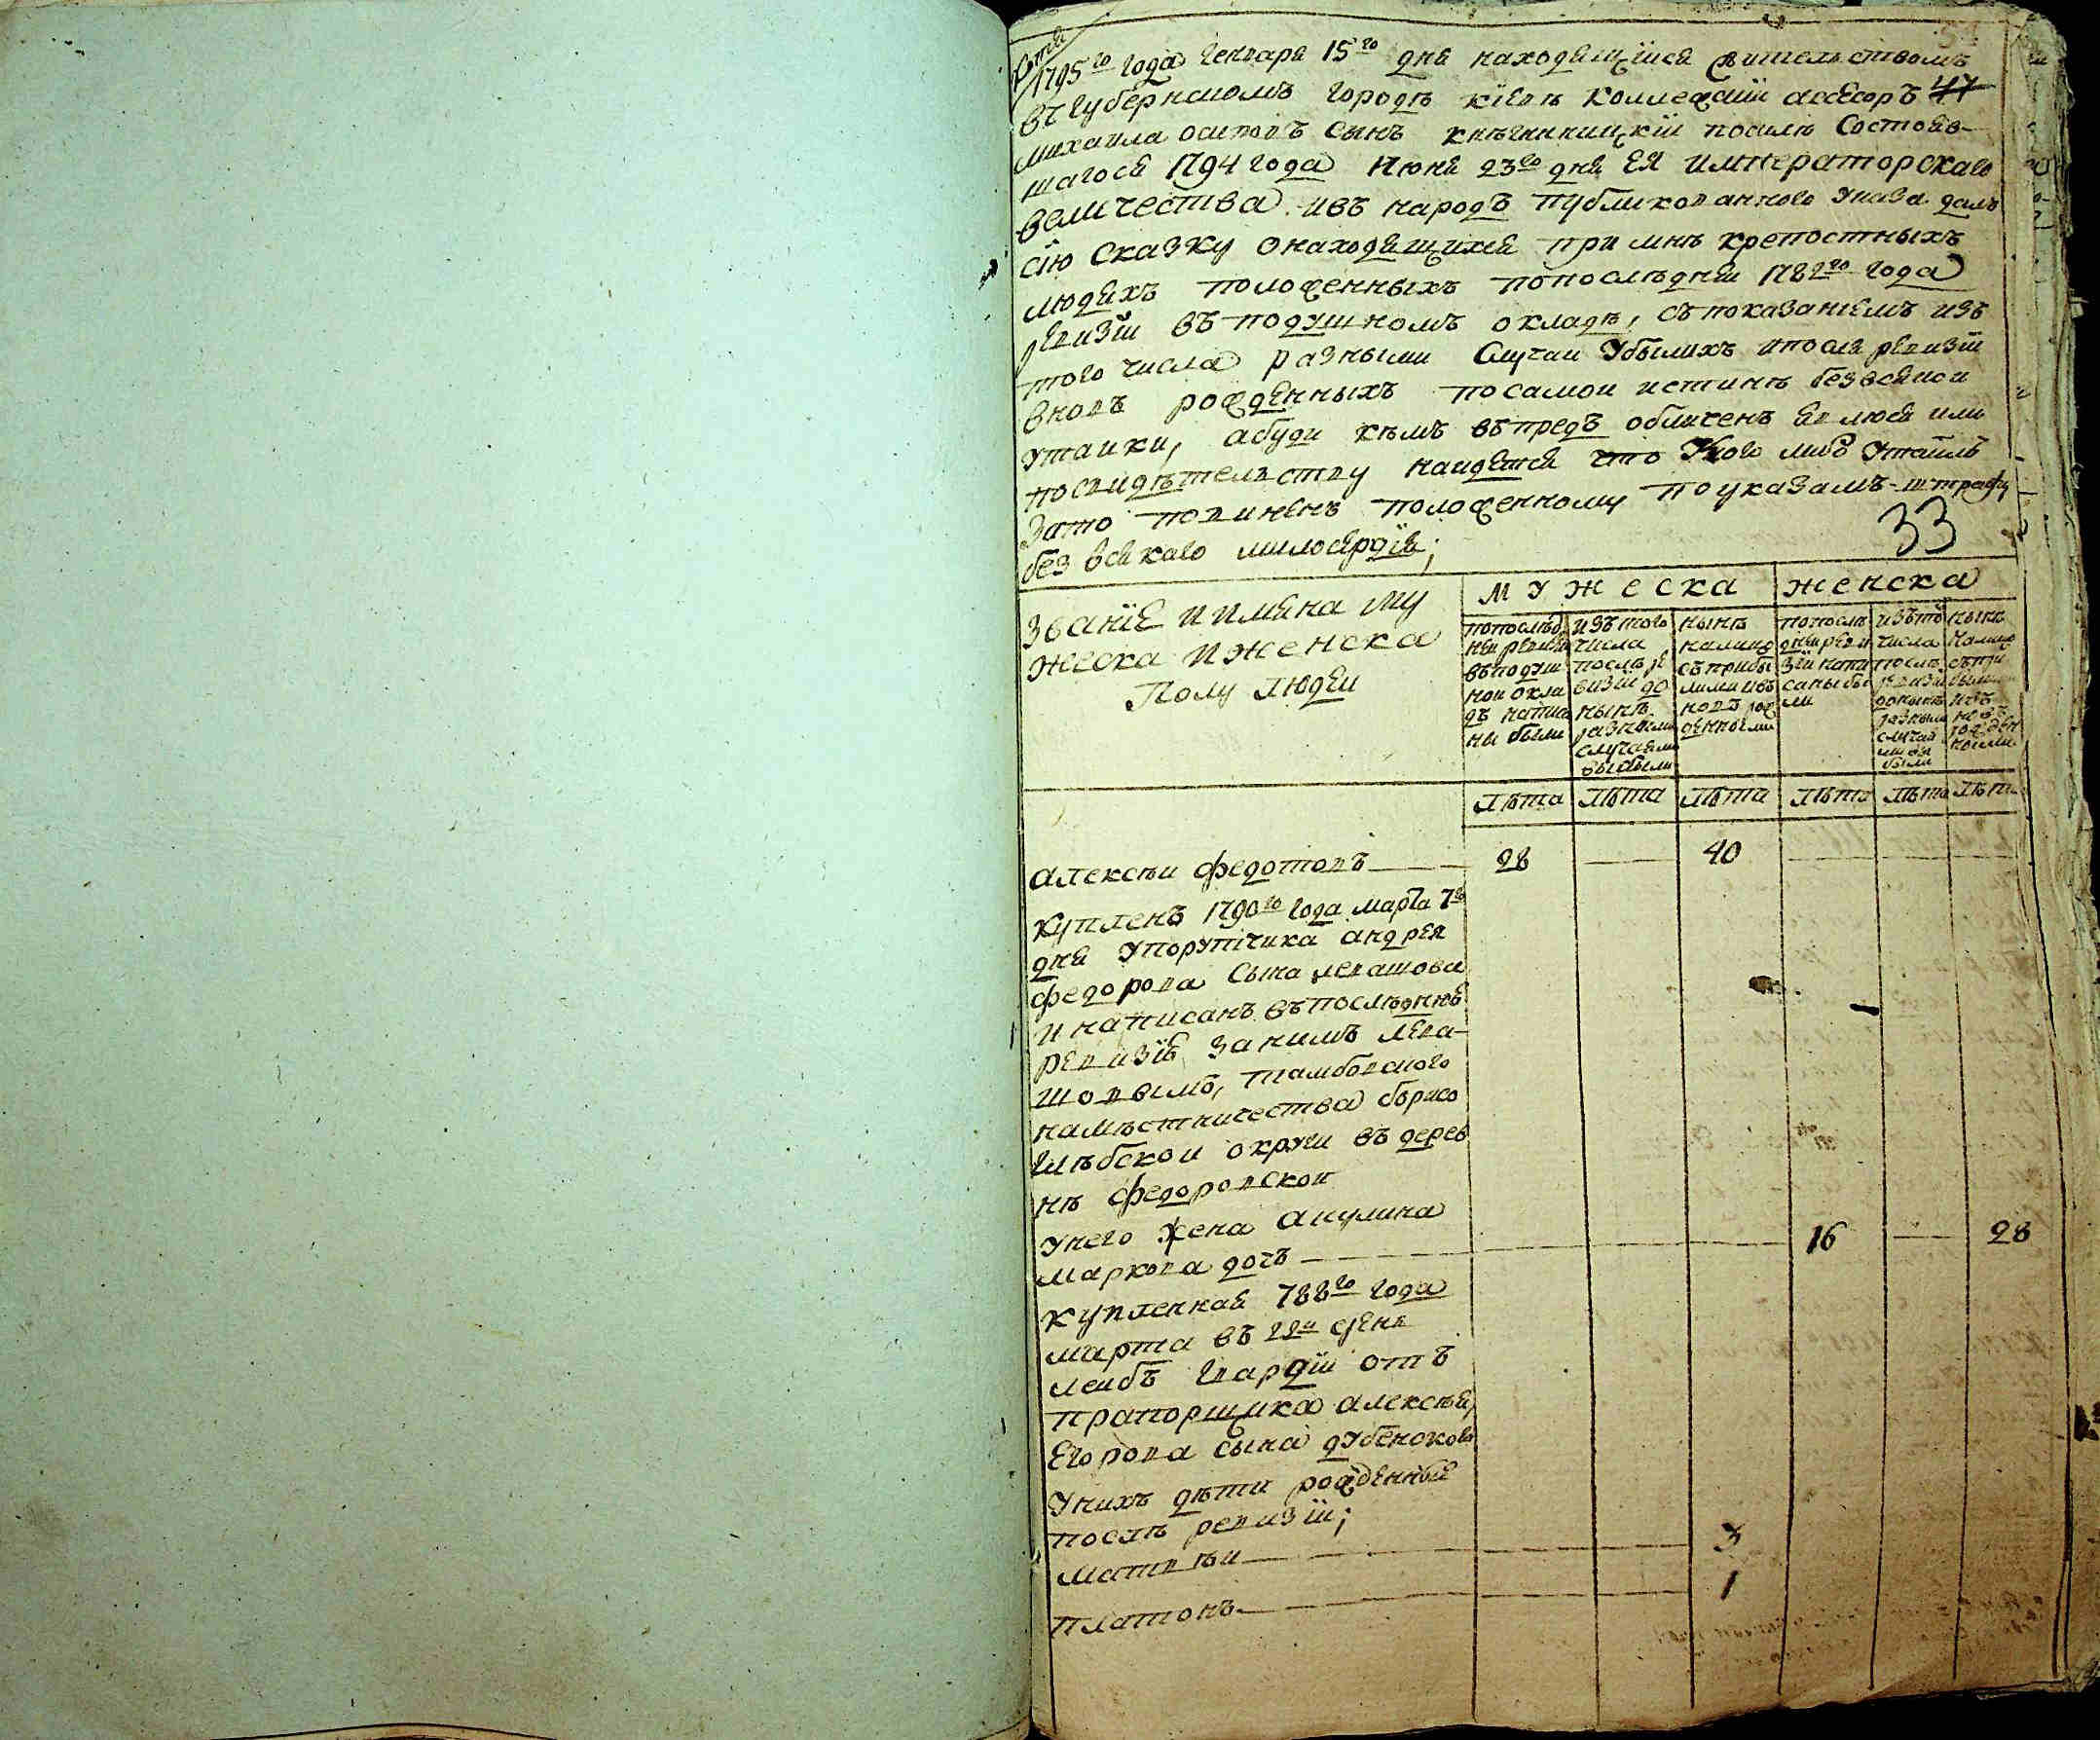 Копия
1795го года Генваря 15го дня находящійся жительствомъ
въ губернскомъ городѣ кіевѣ коллежскій асесоръ 47
михаила осиповъ сынъ посилѣ Состояв-
шагося 1794 года Июня 23го дня ЕЯ императорскаго
величества ивъ народъ публикованного Указа далъ
сію Сказку онаходящихся при мнѣ крепостныхъ
людяхъ положенныхъ попослѣдней 1782го года
ревизіи въ подушномъ окладѣ, съ показаніемъ изъ
того числа разными Случаи Убылихъ ипосля ревизіи
вновъ рожденныхъ посамои истинѣ безвсякои
утаики, абуди кѣмъ въпредъ обличенъ явлюся или
посвидѣтелвству наидется что Кого либо Утаилъ
Зато повиненъ положенному поуказамъ штрафу
без всякаго милосердія;
33
Званіе и имена му
жеска и женска
Полу людеи
мужеска
женска
попослѣд
неи ревизіи
въподуш
ной окла
дъ написа
ны были
изъ того
числа
послѣ ре
визіи до
нынѣ
разными
случаями
выбыли
нынѣ
налицо
съ прибы
лими ивъ
новъ рож
денными
попослѣ
дней реви
зіи напи
саны бы
ли
изъ то
числа
послѣ
ревизіи
донынѣ
разными
случая
ми вы
были
нынѣ
налицо
съ при
были
ивъ
новъ
рожден
ными
лѣта лѣта лѣта лѣта лѣта лѣта
алексѣи федотовъ 28 40
купленъ 1790го года марта 7го
дня Упорутчика андрея
федорова Сына левашова
и написанъ въпослѣднѣй
ревизіе занимъ лева-
шовымъ, тамбовского
намѣстничества борисо
глѣбскои округи въ дерев
нѣ федоровскои
Унего жена акулина
маркова дочъ 16 28
купленная 788го года
марта въ 22й день
леибъ гвардіи отъ
прапорщика алексѣя
Егорова сына дубенскова
Унихъ дѣти рожденные
послѣ ревизіи;
матвѣи 3
платонъ 1